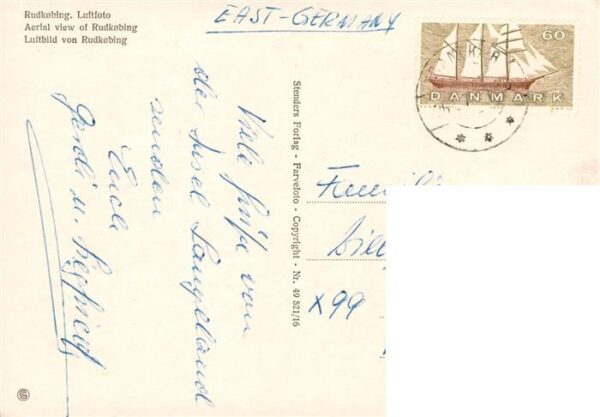 Rudkøbing. Luftfoto
Aerial view of Rudkøbing
Luftbild von Rudkøbing
EAST-GERMANY
60
DANMARK
Viele Grüße von
der Insel Langeland
senden
Euch
Gerdi u. Siegfried
Stenders Forlag - Farvefoto - Copyright - Nr. 49 521/16
Famili
X99